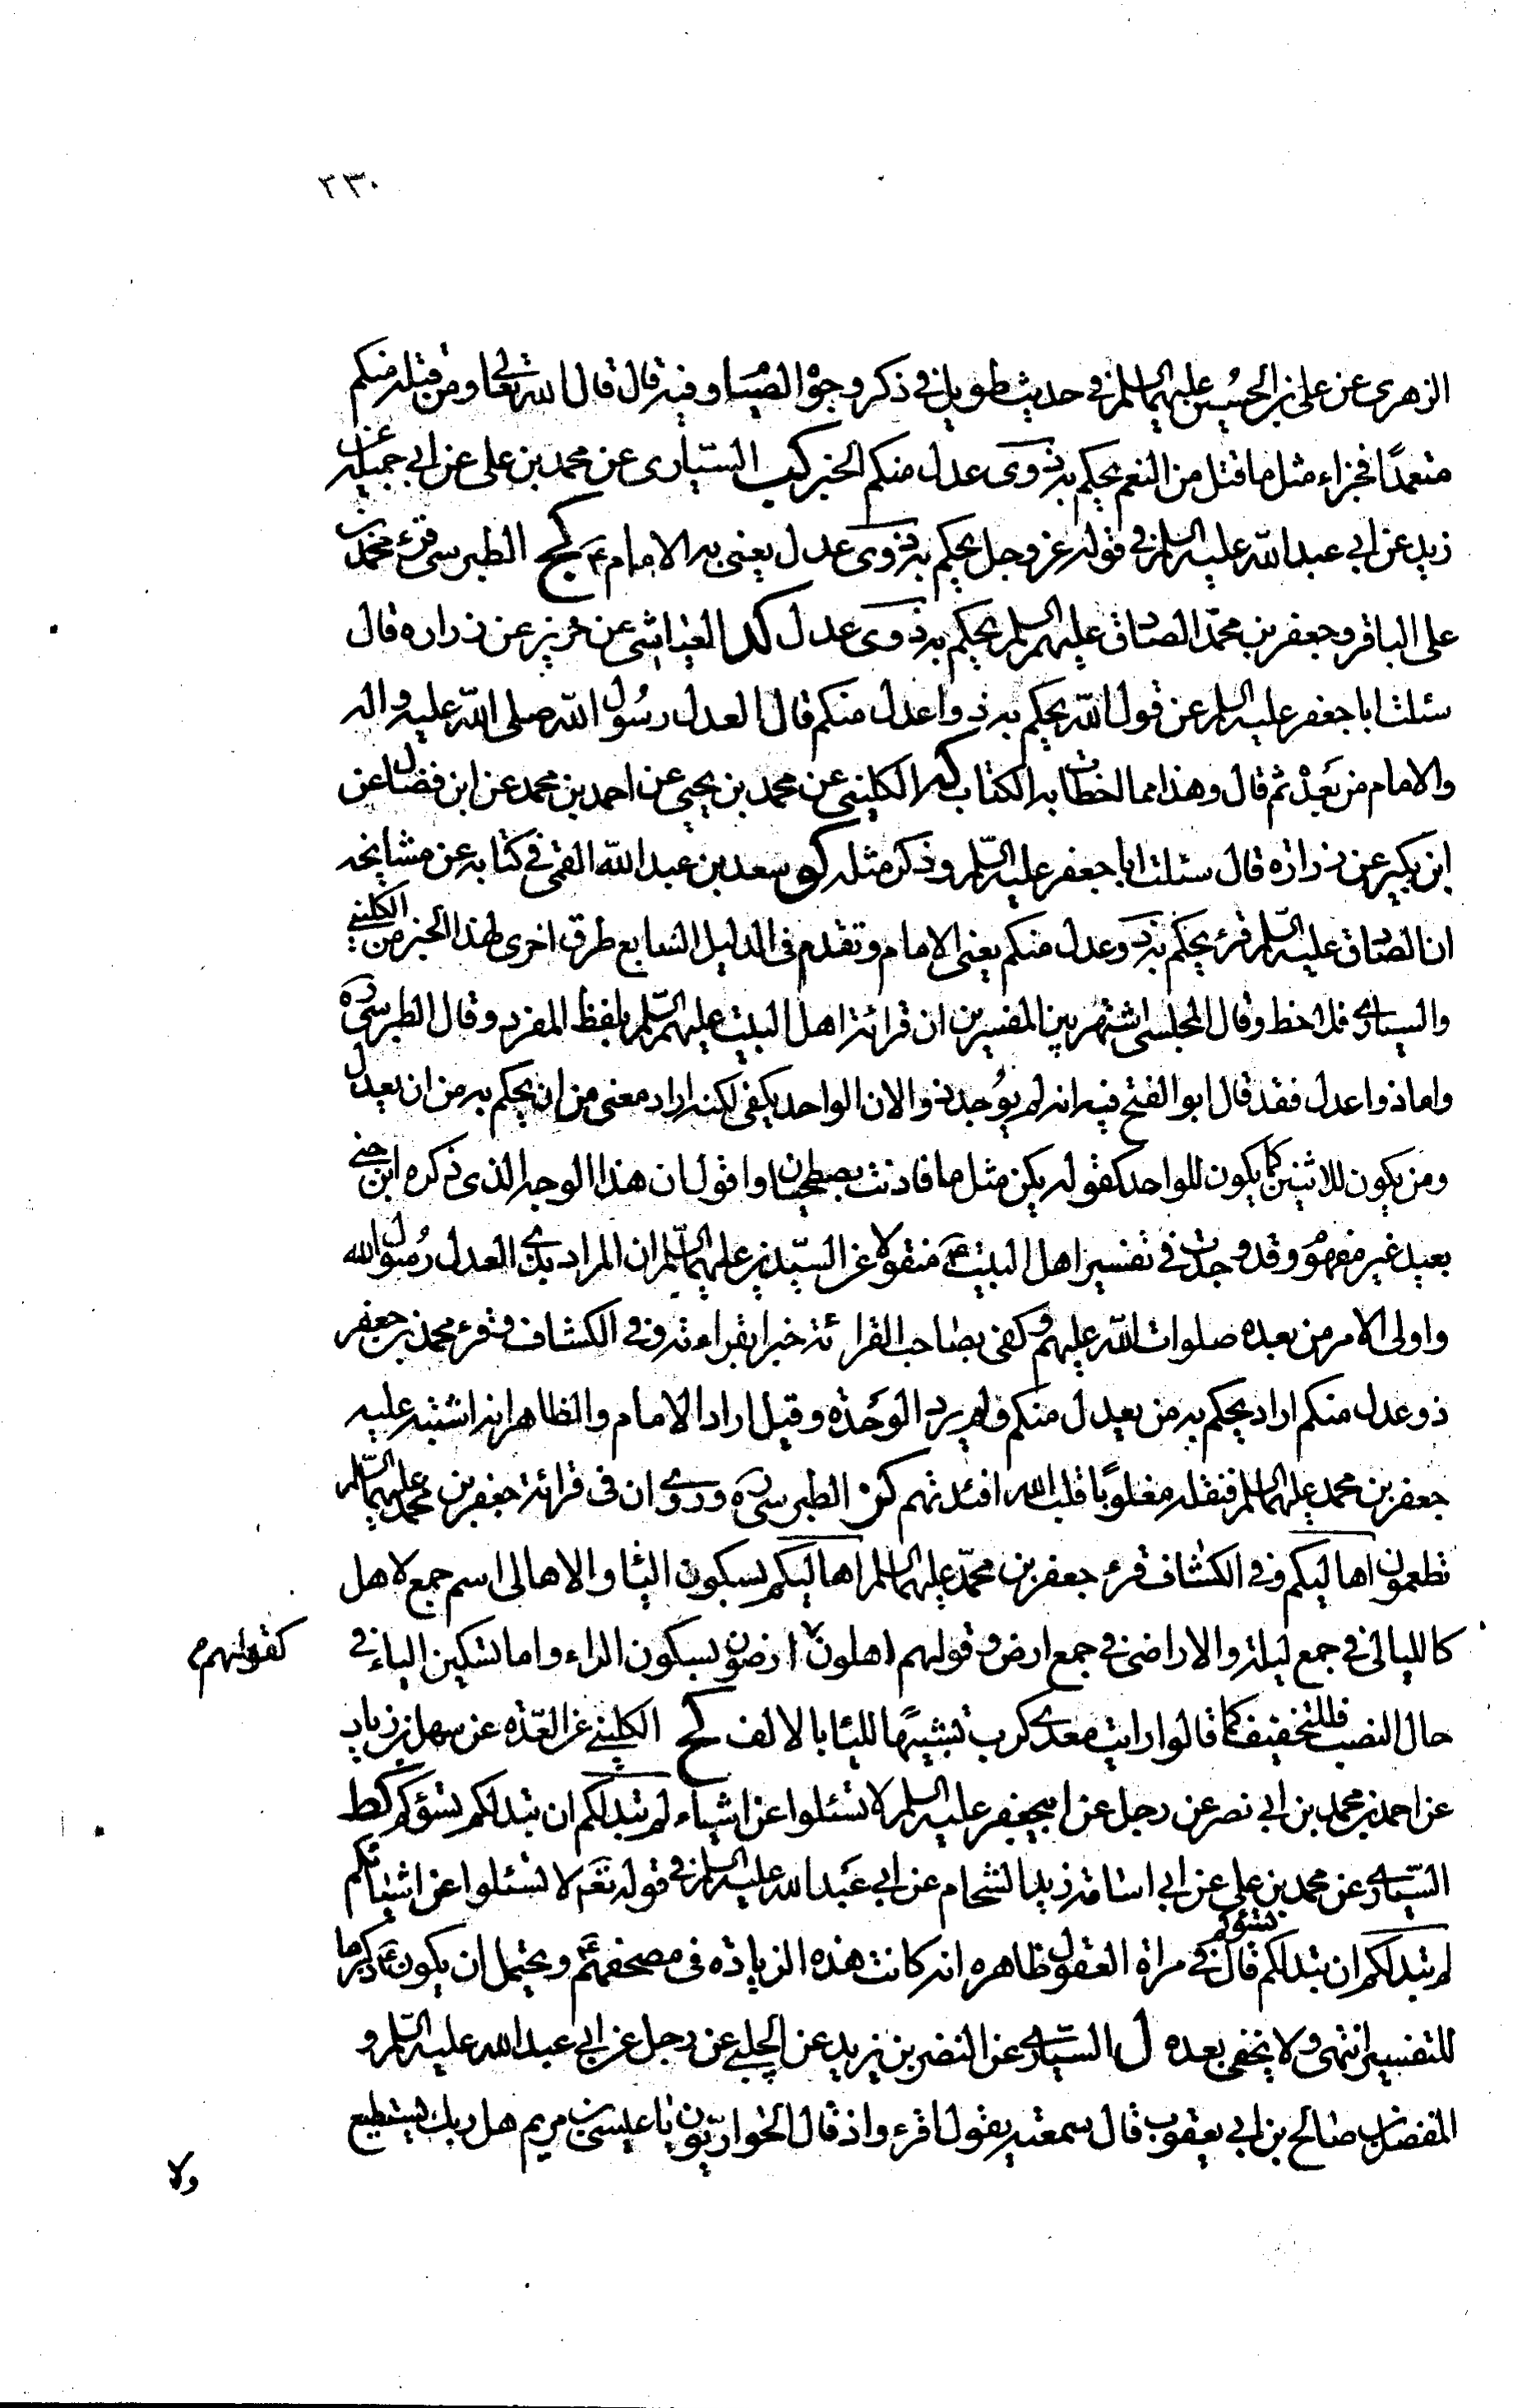 ٢٣٠
الزهرى عن على بن الحسين عليهما السلم فى حديث طويل فى ذكر وجوه الصيام وفيه قال قال الله تعالى ومن قتله منكم
متعمدًا فجزاء مثل ما قتل من النعم يحكم به ذوى عدل منكم الخبر كب السيارى عن محمد بن على عن ابى جميلة عن
زيد عن ابى عبد الله عليه السلم فى قوله عز وجل يحكم به ذوى عدل يعنى به الامام ع كج الطبرسى قرئ محمد بن
على الباقر وجعفر بن محمد الصادق عليهم السلم يحكم به ذوى عدل كد العياشى عن حريز عن زراره قال
سئلت ابا جعفر عليه السلم عن قول الله يحكم به ذوا عدل منكم قال العدل رسول الله صلى الله عليه واله
والامام من بعده ثم قال وهذا مما اخطات به الكتاب كه الكلينى عن محمد بن يحيى عن احمد بن محمد عن ابن فضال عن
ابن بكير عن زرارة قال سئلت ابا جعفر عليه السلم وذكر مثله كو سعد بن عبد الله القمى فى كتابه عن مشايخه
ان الصادق عليه السلم قرئ يحكم به ذو عدل منكم يعنى الامام وتقدم فى الدليل السابع طرق اخرى لهذا الخبر من الكلينى
والسيارى فلاحظ وقال المجلسى اشتهر بين المفسرين ان قرائة اهل البيت عليهم السلم بلفظ المفرد وقال الطبرسى ره
واما ذوا عدل فقد قال ابو الفتح فيه انه لم يوحد ذو الان الواحد يكفى لكنه اراد معنى من ان يحكم به من ان يعدل
ومن يكون للاثنين كما يكون للواحد كقوله يكن مثل ما قاذئب يصطحبان واقول ان هذا الوجه الذى ذكره ابن جنى
بعيد غير مفهوم وقد وجدت فى تفسير اهل البيت ع منقولا عن السيدين عليهما السلم ان المراد بذى العدل رسول الله
واولى الامر من بعده صلوات الله عليهم وكفى بصاحب القرائة خبرا بقراءته وفى الكشاف وقرئ محمد بن جعفر
ذو عدل منكم اراد يحكم به من يعدل منكم ولم يرد الوحدة وقيل اراد الامام والظاهر انه اشتبه عليه
جعفر بن محمد عليهما السلم فنقله مغلوبًا قلب الله افئدتهم كز الطبرسى ره وروى ان فى قرائة جعفر بن محمد عليهما السلم
تطعمون اهاليكم وفى الكشاف قرئ جعفر بن محمد عليهما السلم اهاليكم بسكون اليا والاهالى اسم جمع لاهل
كالليالى فى جمع ليلة والاراضى فى جمع ارض وقولهم اهلون ارضون بسكون الراء واما تسكين الياء فى
كقولهم
حال النصب فللتخفيف كما قالوا رايت معدى كرب تشبيهًا لليا بالالف كح الكلينى عن العدة عن سهل بن زياد
عن احمد بن محمد بن ابى نصر عن رجل عن ابيجعفر عليه السلم لا تسئلوا عن اشياء لم تبد لكم ان تبد لكم تسؤكم كط
السيارى عن محمد بن على عن ابى اسامة زيد الشحام عن ابى عبد الله عليه السلم فى قوله تع لا تسئلوا عن اشياء
لم تبد لكم ان تبد لكم تسؤكم قال فى مراة العقول ظاهره انه كانت هذه الزياده فى مصحفهم ع ويحتمل ان يكون ذكرها
للتفسير انتهى ولا يخفى بعده ل السيارى عن النضر بن يزيد عن الحلبى عن رجل عن ابى عبد الله عليه السلم و
المفضل بن صالح بن ابى يعقوب قال سمعته يقول اقرء واذ قال الحواريون يا عيسى بن مريم هل ربك يستطيع
ولا